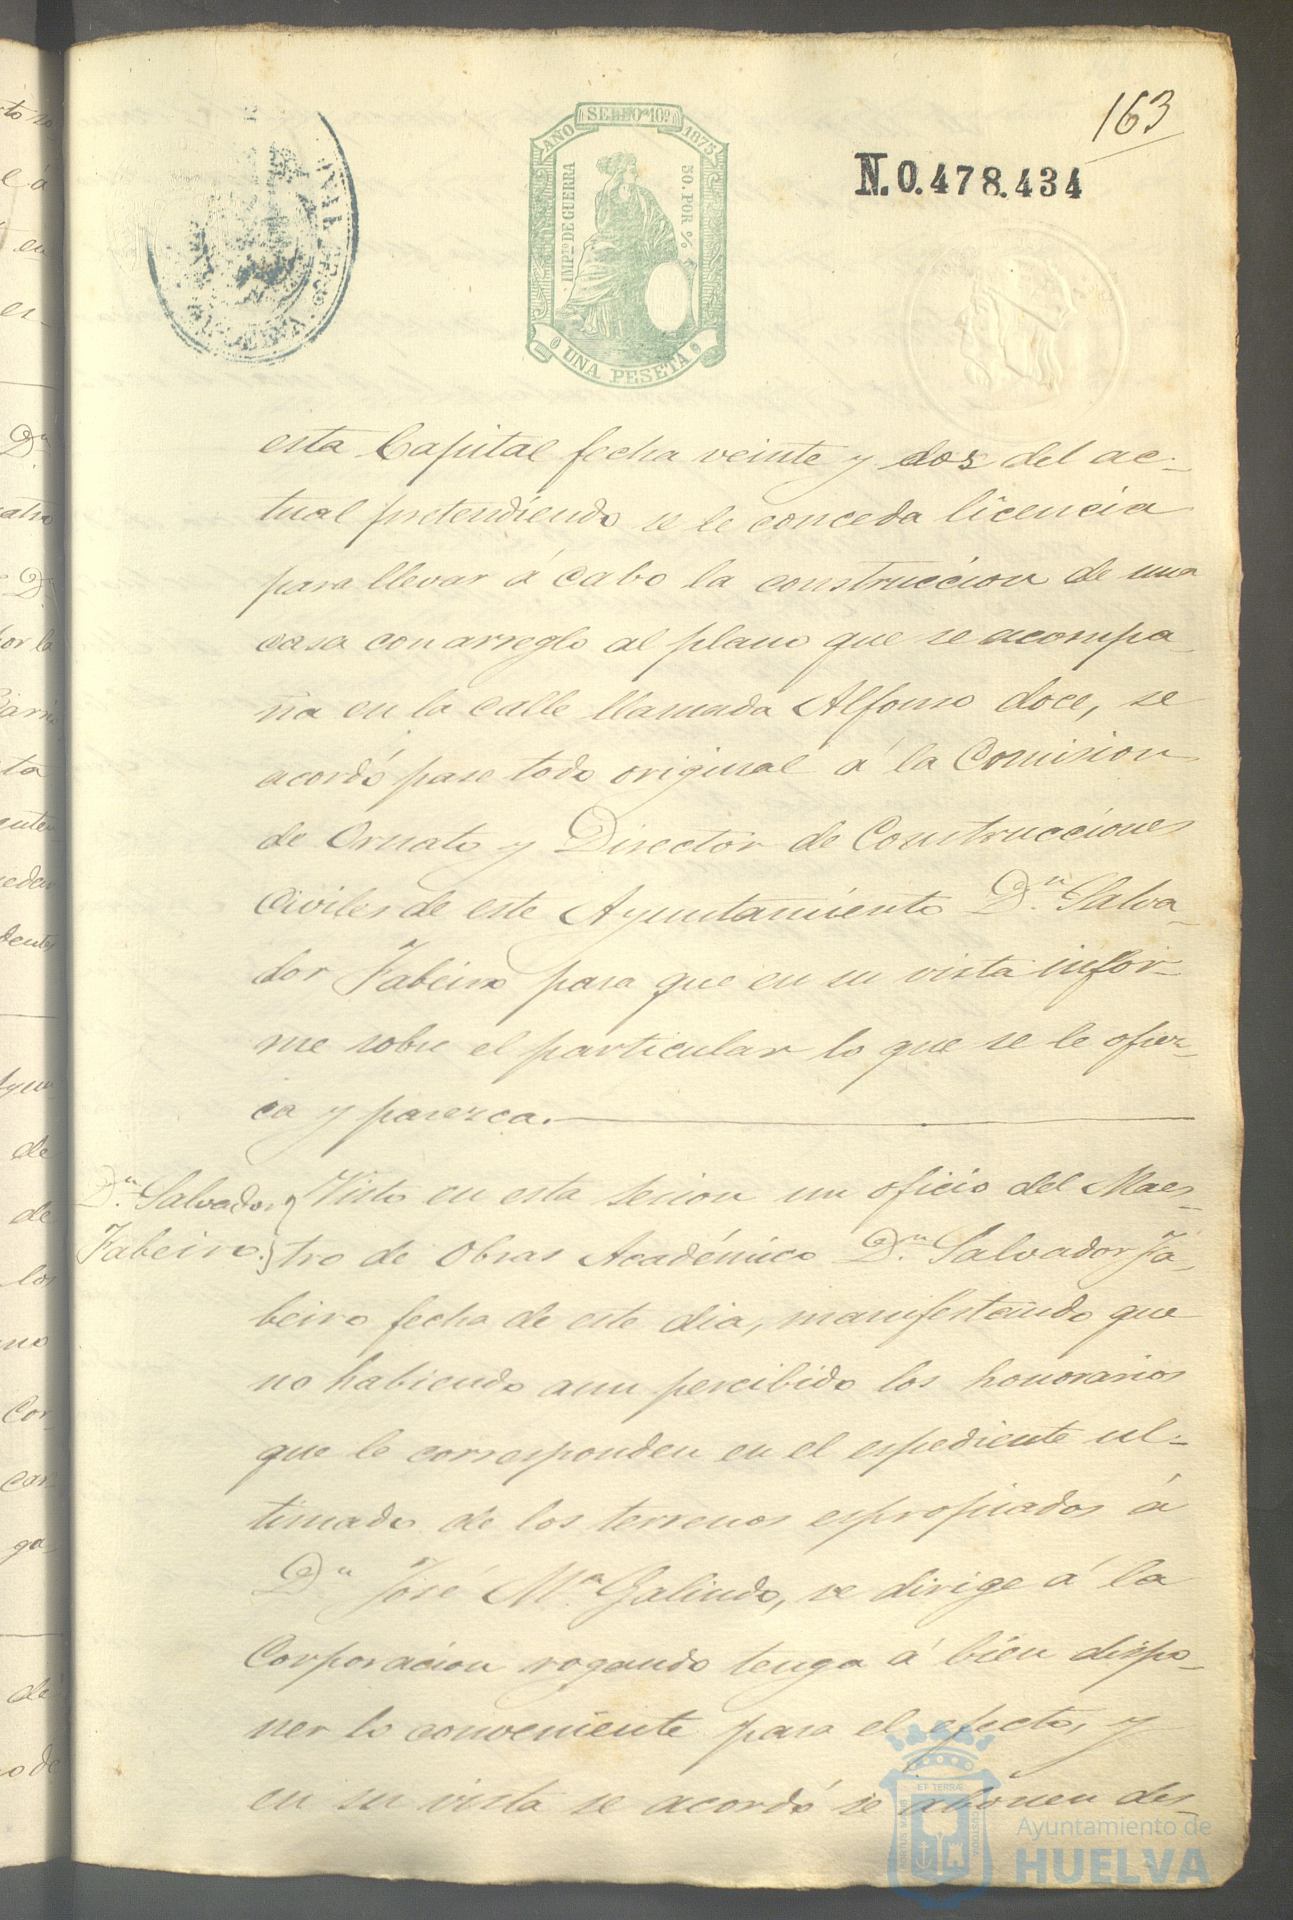 163
N. 0.478.434
AÑO SELLO 10º 1875
IMPTO DE GUERRA
50. POR %
UNA PESETA
esta Capital fecha veinte y dos del ac-
tual pretendiendo se le conceda licencia
para llevar á cabo la construccion de una
casa con arreglo al plano que se acompa-
ña en la calle llamada Alfonso doce, se
acordó pase todo original á la Comision
de Ornato y Director de Construcciones
Civiles de este Ayuntamiento Dn. Salva-
dor Fabeiro para que en su vista infor-
me sobre el particular lo que se le ofrez-
ca y parezca.
Dn. Salvador
Fabeiro.
Visto en esta sesion un oficio del Maes-
tro de Obras Académico Dn. Salvador Fa-
beiro fecha de este dia, manifestando que
no habiendo aun percibido los honorarios
que le corresponden en el espediente ul-
timado de los terrenos espropiados á
Dn José Ma. Galindo, se dirige á la
Corporacion rogando tenga á bien dispo-
ner lo conveniente para el efecto, y
en su vista se acordó se abonen des-
Ayuntamiento de
HUELVA